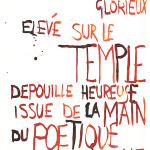 GLORIEUX
ELEVÉ SUR LE
TEMPLE
DEPOUILLE HEUREUSE
ISSUE DE LA MAIN
DU POETIQUE